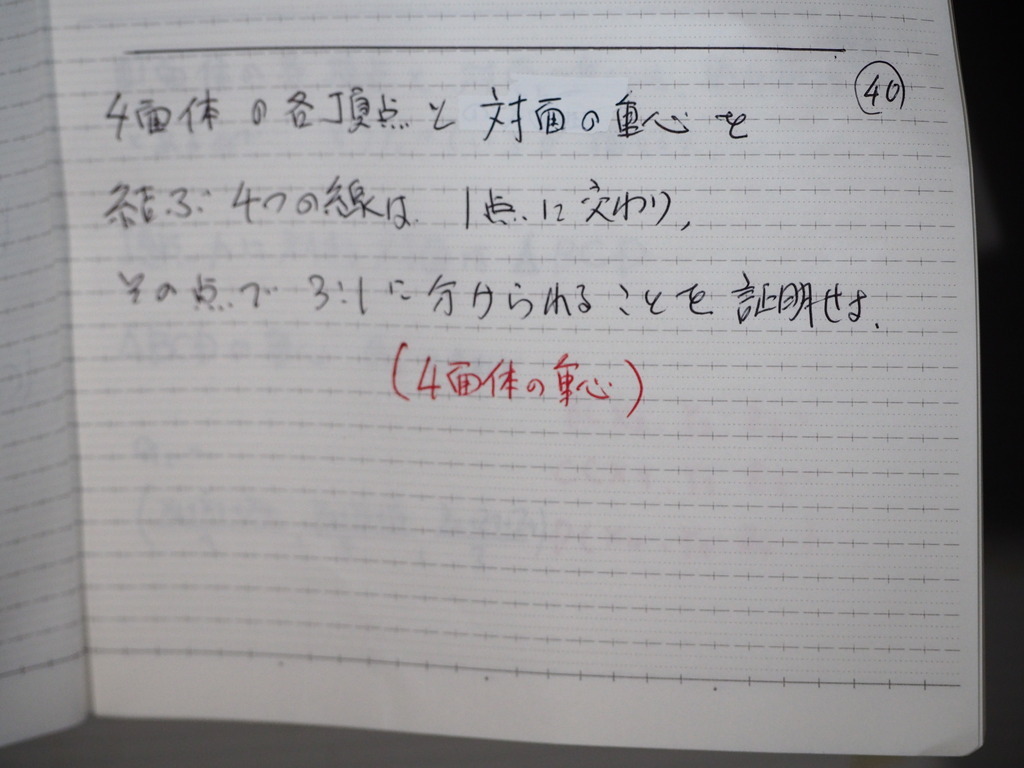 40
4面体の各頂点と対面の重心を
結ぶ4つの線は1点に交わり,
その点で3:1に分けられることを証明せよ.
(4面体の重心)